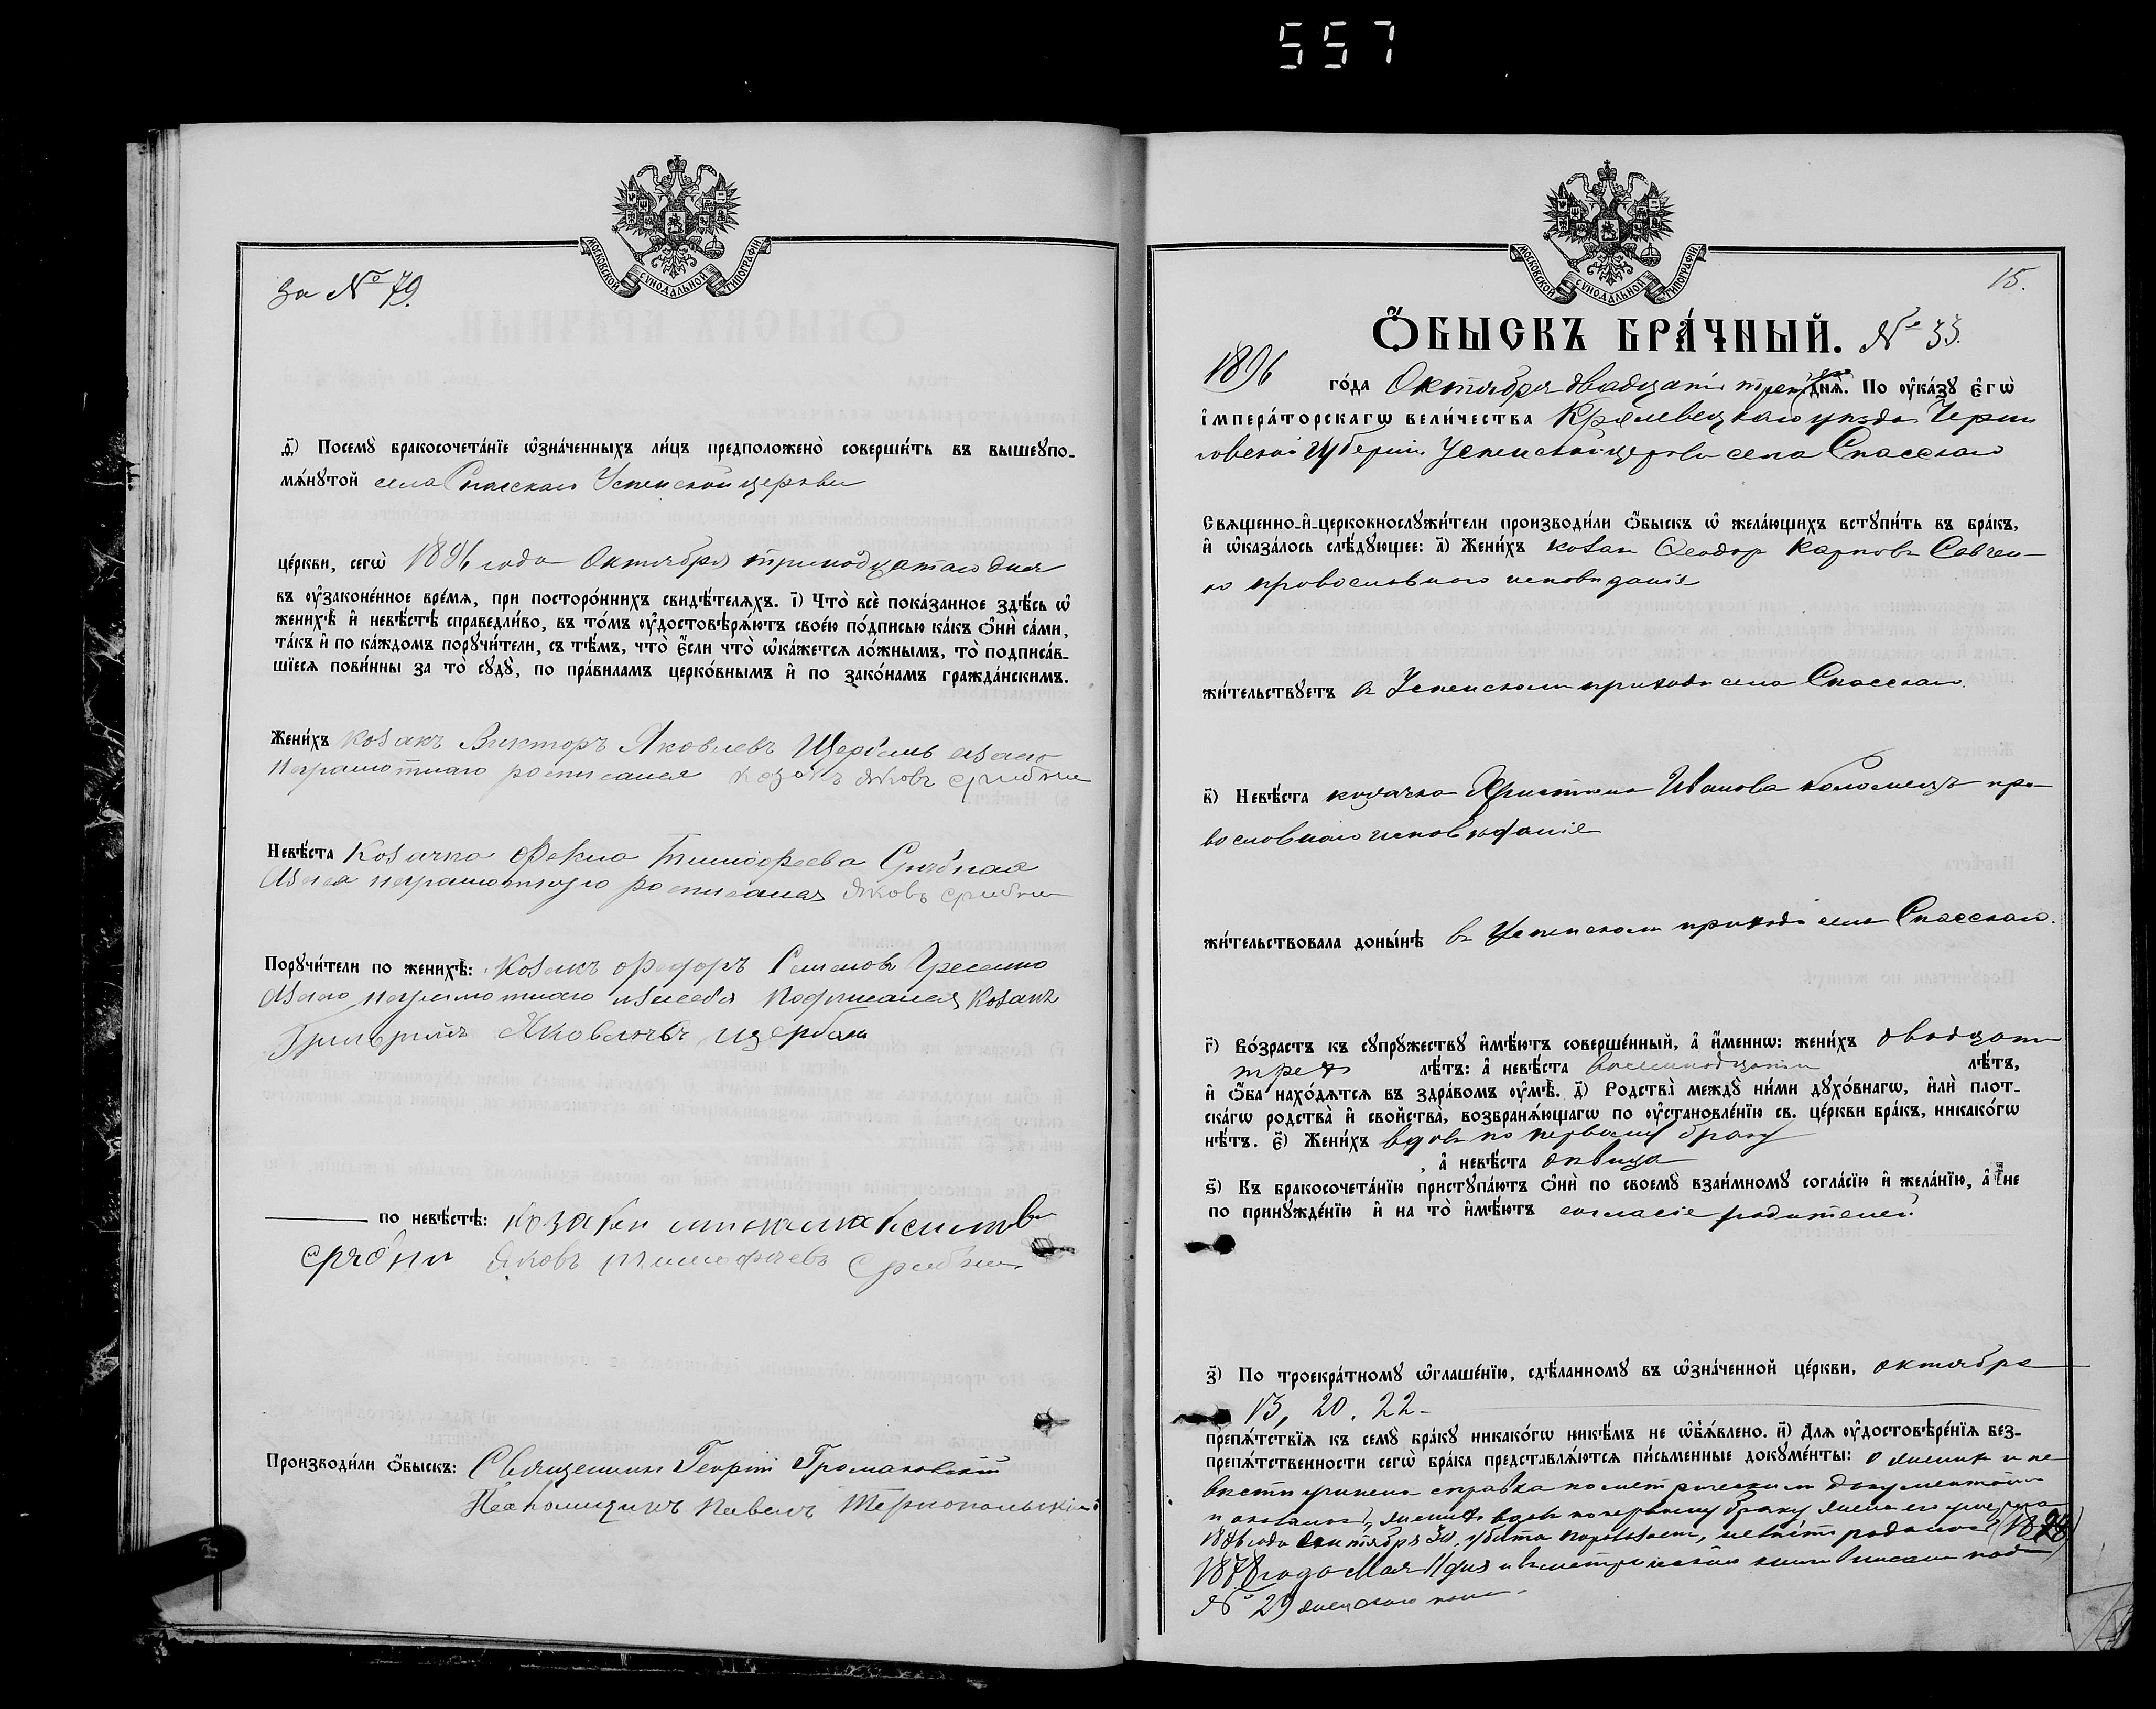 557
МОСКОВСКОЙ СѴНОДАЛЬНОЙ ТИПОГРАФІИ
за № 79.
д҃) Посемꙋ̀ бракосочета́нїе ѡ҆зна́ченныхъ ли́цъ предположено̀ соверши́ть въ вышеꙋпо-
мѧ́нꙋтой села Спасскаго Успенской церкви
це́ркви, сегѡ̀ 1896 года Октября тринадцатаго дня
въ ᲂу҆зако́ненное вре́мѧ, при посторо́ннихъ свидѣ́телѧхъ. і҃) Что̀ всѐ пока́занное здѣ́сь ѡ҆
женихѣ̀ и҆ невѣ́стѣ справедли́во, въ то́мъ ᲂу҆достовѣрѧ́ютъ свое́ю по́дписью ка́къ ѻ҆нѝ са́ми,
та́къ и҆ по ка́ждомъ порꙋчи́тели, съ тѣ́мъ, что̀ є҆́сли что̀ ѡ҆ка́жется ло́жнымъ, то̀ подписа́в-
шїеся пови́нны за то̀ сꙋдꙋ̀, по пра́виламъ церко́внымъ и҆ по зако́намъ гражда́нскимъ.
Жени́хъ козакъ Викторъ Яковлевъ Щербань а за него
неграмотнаго росписался козакъ Яковъ срибни
Невѣ́ста Козачка Фекла Тимофеева Срибная
а за нея неграмотную росписался Яковъ срибни
Порꙋчи́тели по женихѣ̀: Козакъ Федоръ Семеновъ
а за него неграмотнаго и за себя подписался Козакъ
Григорий Яковлевъ щербань
по невѣ́стѣ: козаки
срибни Яковъ тимофеевъ Срибни
Производи́ли ѻ҆́быскъ: Священникъ Георгій Громаковскій
Псаломщикъ Павелъ Тернопольскій
МОСКОВСКОЙ СѴНОДАЛЬНОЙ ТИПОГРАФІИ
15.
Ѻ҆́БЫСКЪ БРА́ЧНЫЙ. № 33.
1896 го́да Октября двадцать дня̀. По ᲂу҆ка́зꙋ є҆гѡ̀
і҆мпера́торскагѡ вели́чества Кролевецкаго уѣзда Черни
говской Губерніи Успенской церкви села Спасскаго
Священно-и҆-церковнослꙋжи́тели производи́ли ѻ҆́быскъ ѡ҆ жела́ющихъ встꙋпи́ть въ бра́къ,
и҆ ѡ҆каза́лось слѣ́дꙋющее: а҃) Жени́хъ козак Ѳеодор Карповъ Савчен-
ко православнаго исповѣданія
жи́тельствꙋетъ в Успенском приходѣ села Спасскаго.
в҃) Невѣ́ста козачка Христина Иванова Коломѣецъ пра-
вославнаго исповѣданія
жи́тельствовала доны́нѣ въ Успенском приходѣ села Спасскаго.
г҃) Во́зрастъ къ сꙋпрꙋ́жествꙋ и҆мѣ́ютъ соверше́нный, а҆ и҆́меннѡ: жени́хъ двадцати
трех лѣ́тъ: а҆ невѣ́ста восемнадцати лѣ́тъ,
и҆ ѻ҆́ба нахо́дятся въ здра́вомъ ᲂу҆мѣ̀. д҃) Родства̀ междꙋ̀ ни́ми дꙋхо́внагѡ, и҆лѝ плот-
ска́гѡ родства̀ и҆ свойства̀, возбранѧ́ющагѡ по ᲂу҆становле́нїю св. це́ркви бра́къ, никако́гѡ
нѣ́тъ. є҃) Жени́хъ вдовъ по первому браку
а҆ невѣ́ста дѣвица
ѕ҃) Къ бракосочета́нїю пристꙋпа́ютъ ѻ҆нѝ по своемꙋ̀ взаи́мномꙋ согла́сїю и҆ жела́нїю, а҆ не
по принꙋжде́нїю и҆ на то̀ и҆мѣ́ютъ согласіе родителей
з҃) По троекра́тномꙋ ѡ҆глаше́нїю, сдѣ́ланномꙋ въ ѡ҆зна́ченной це́ркви, октября
13, 20, 22-
препѧ́тствїя къ семꙋ̀ бра́кꙋ никако́гѡ никѣ́мъ не ѡ҆бъѧ́влено. и҃) Длѧ ᲂу҆достовѣре́нїя без-
препѧ́тственности сегѡ̀ бра́ка представлѧ́ются пи́сьменные докꙋме́нты: о женихѣ и не
вѣстѣ учинена справка по метрическим документам
и оказалось, женихъ вдовъ по первому браку жена его умерла
1896 года Сентября 30, невѣста родилась (1878)
1878 года Мая 11 дня и въ метрической книгѣ записана под
№ 29 женскаго пола.